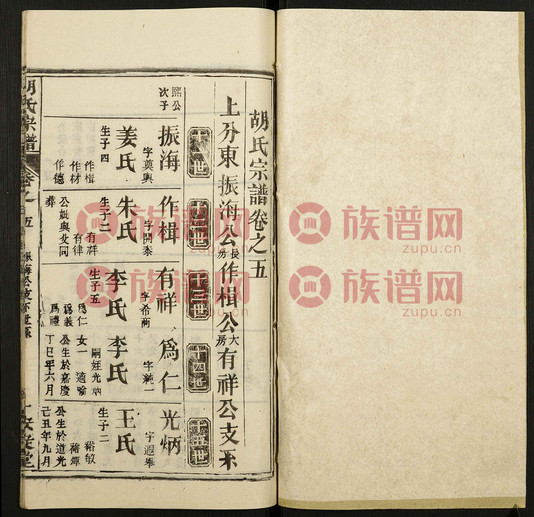 胡氏宗譜卷之五
上分東振海公長房作楫公大房有祥公支系
十一世
十二世
十三世
十四世
十五世
熙公次子
振海
字奠輿
姜氏
生子四
作楫
作材
作德
作楫
字開泰
朱氏
生子二
有祥
有律
公妣與父同葬
有祥
字希商
李氏
生子五
為仁
為義
為禮
為仁
字純一
李氏
嗣姪光炳
女一
適喻
公生於嘉慶丁巳年六月
光炳
字遐舉
王氏
生子二
裕敏
裕燁
公生於道光己丑年九月
胡氏宗譜
卷之五
振海公支系世錄
安定堂
族谱网
zupu.cn
族谱网
zupu.cn
族谱网
zupu.cn
族谱网
zupu.cn
族谱网
zupu.cn
族谱网
zupu.cn